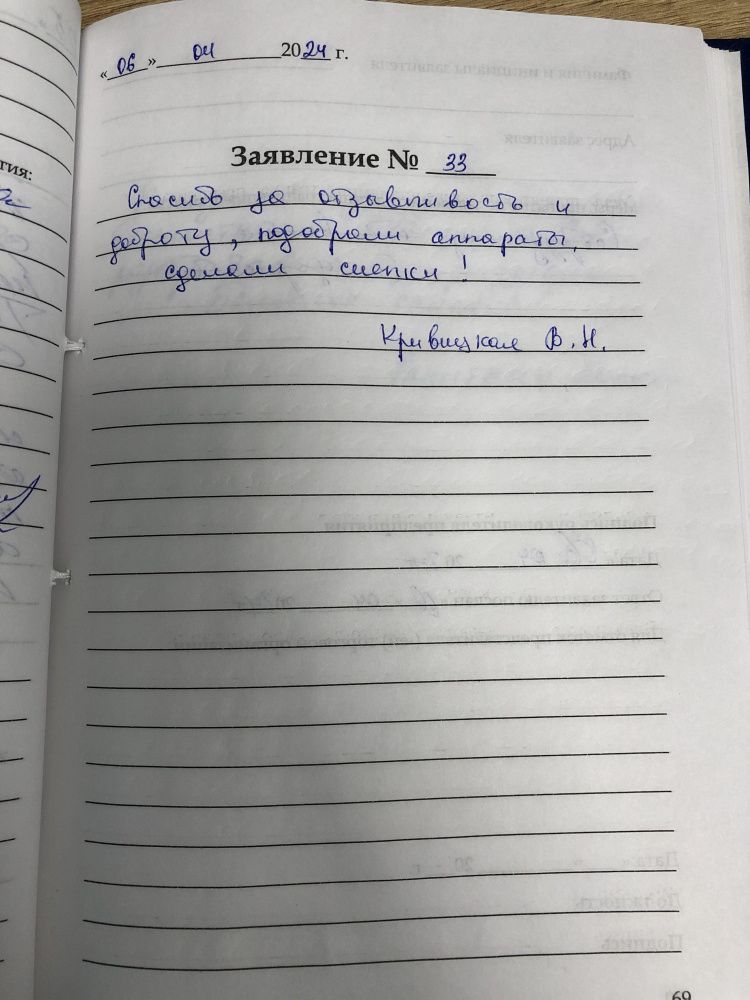 «06» 04 2024 г.
Заявление № 33
Спасибо за отзывчивость и
доброту, подобрали аппараты,
сделали слепки!
Кривицкая В.Н.
гия:
69